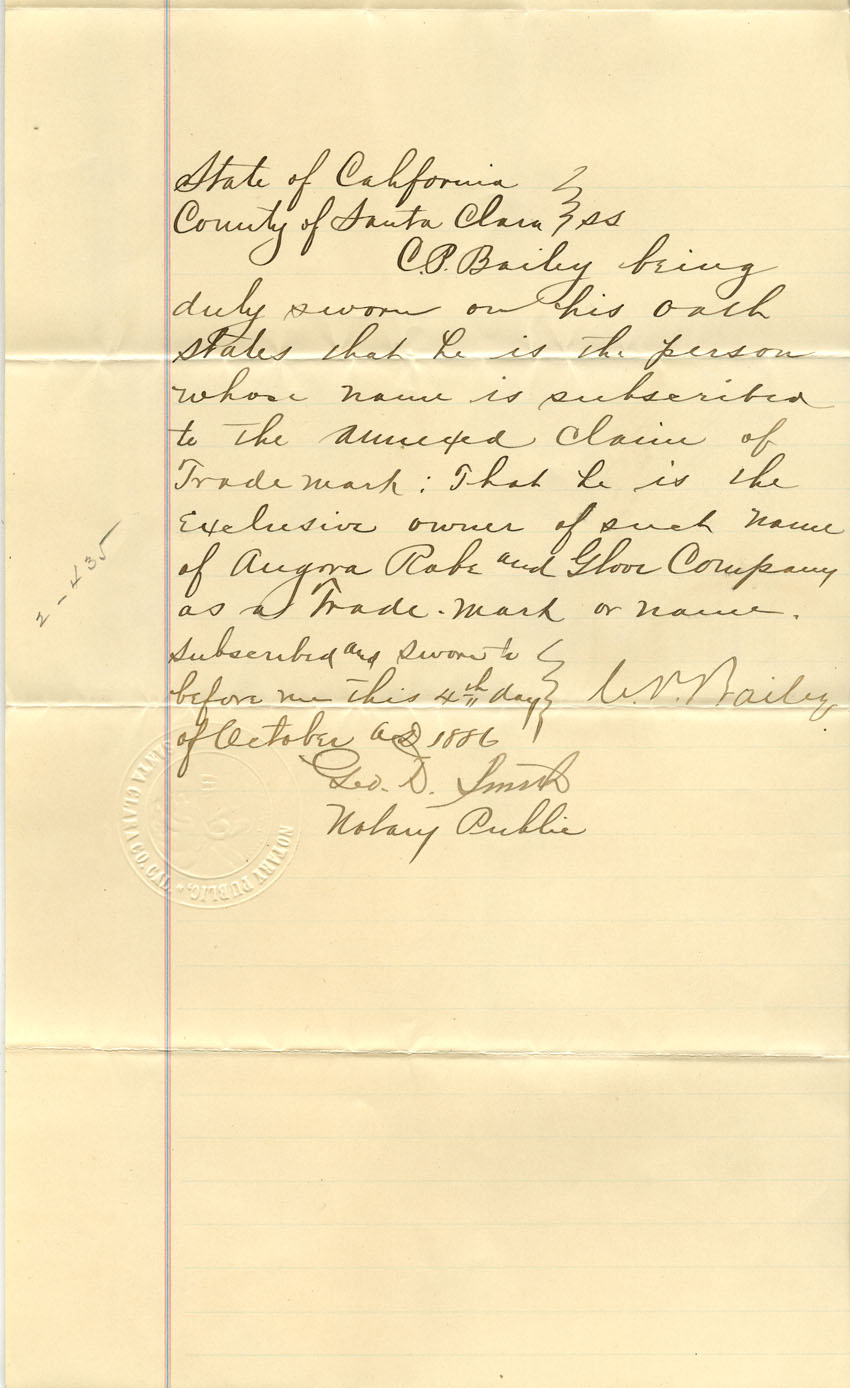 State of California }
County of Santa Clara } ss
C.P. Bailey being
duly sworn on his oath
states that he is the person
whose name is subscribed
to the annexed claim of
Trade mark: That he is the
Exclusive owner of such name
of Angora Robe and Glove Company
as a Trade-mark or name.
Subscribed and sworn to }
before me this 4th day } C.P. Bailey
of October AD 1886
Geo. D. Smith
Notary Public
2-435
NOTARY PUBLIC * SANTA CLARA CO. CAL.